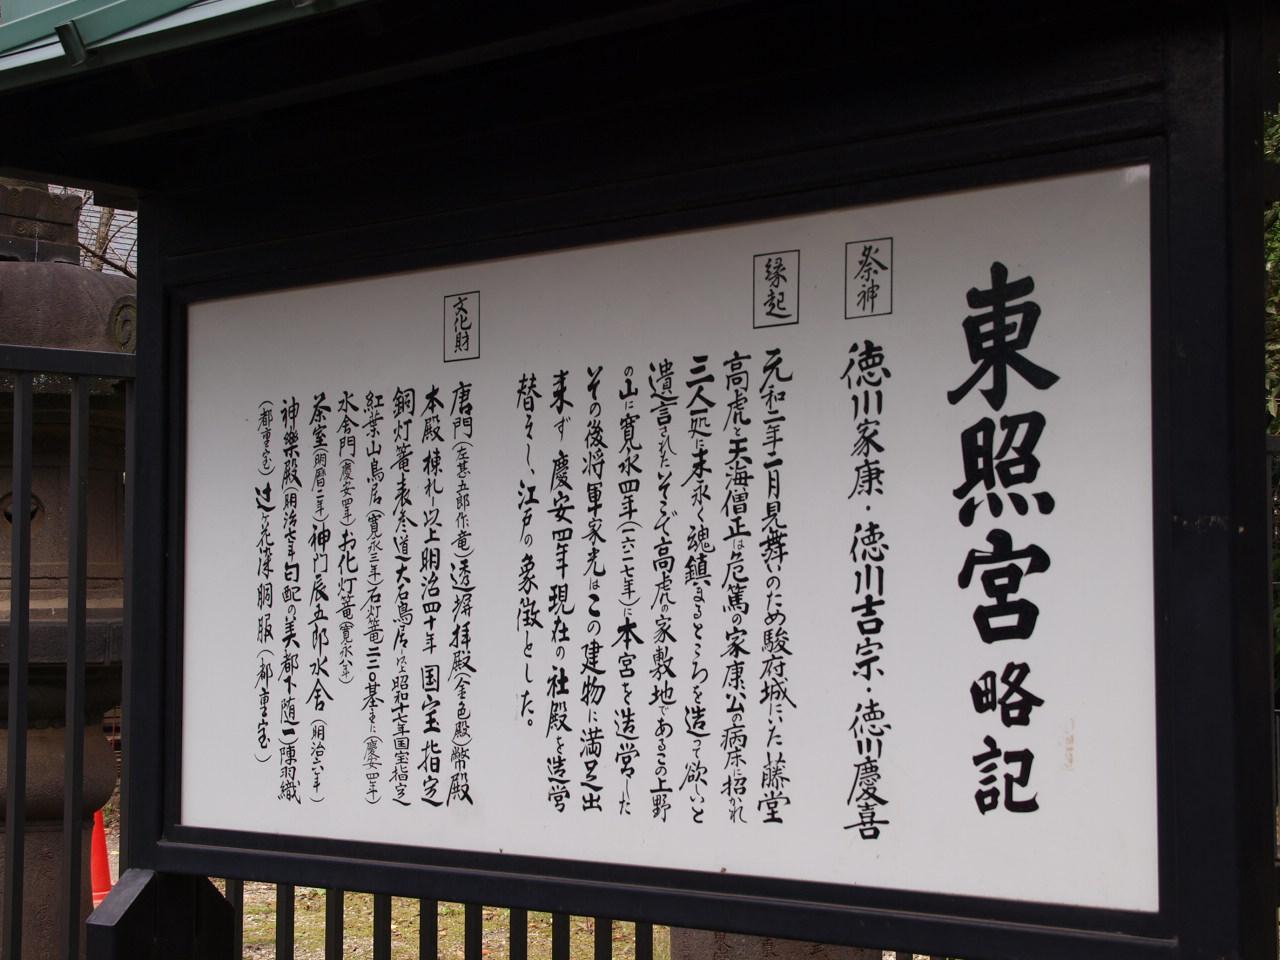 東照宮略記
祭神
徳川家康・徳川吉宗・徳川慶喜
縁起
元和二年二月見舞いのため駿府城にいた藤堂
高虎と天海僧正は危篤の家康公の病床に招かれ
三人一処に末永く魂鎮まるところを造って欲しいと
遺言されたいそこで高虎の家敷地であるこの上野
の山に寛永四年(一六二七年)に本宮を造営した
その後将軍家光はこの建物に満足出
来ず慶安四年現在の社殿を造営
替えし、江戸の象徴とした。
文化財
唐門(左甚五郎作竜)透塀拝殿(金色殿)幣殿
本殿棟札以上明治四十年国宝指定
銅灯篭表参道大石鳥居以上昭和十七年国宝指定
紅葉山鳥居(寛永三年)石灯篭二二〇基
(慶安四年)
水舎門(慶安四年)お化灯篭(寛永八年)
茶室(明暦二年)神門辰五郎水舎(明治六年)
神樂殿明治七年勾配の美都下随一陳羽織
(都重宝)辻ケ花染胴服(都重宝)